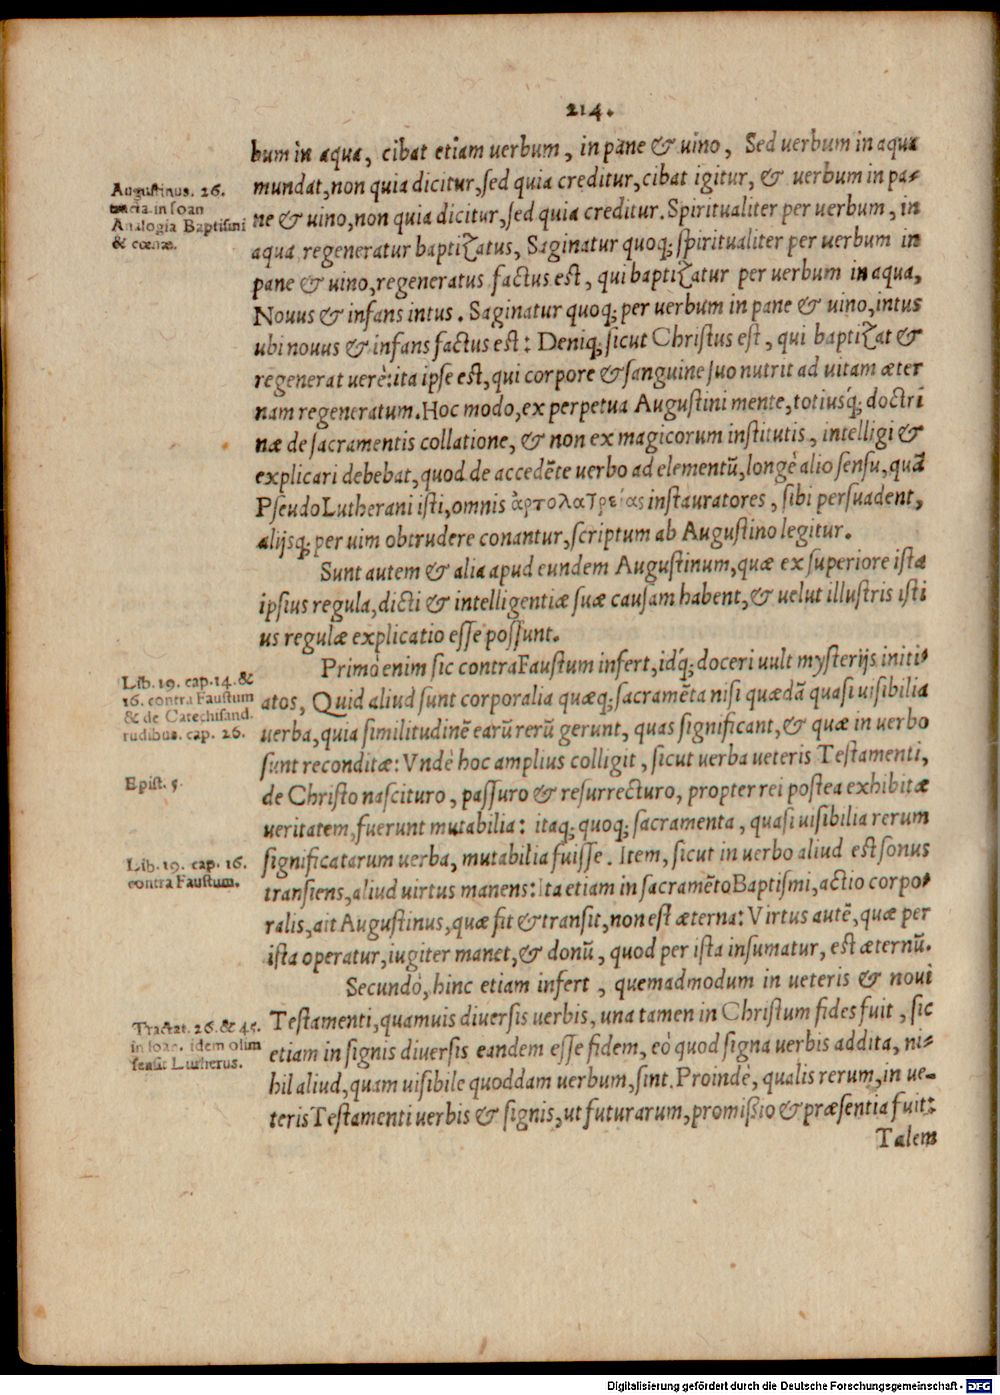 214.
bum in aqua, cibat etiam uerbum, in pane & uino, Sed uerbum in aqua
mundat, non quia dicitur, ſed quia creditur, cibat igitur, & uerbum in pa-
ne & uino, non quia dicitur, ſed quia creditur. Spiritualiter per uerbum, in
aqua regeneratur baptizatus, Saginatur quoq; ſpiritualiter per uerbum in
pane & uino, regeneratus factus eſt, qui baptizatur per uerbum in aqua,
Nouus & infans intus. Saginatur quoq; per uerbum in pane & uino, intus
ubi nouus & infans factus eſt: Deniq; ſicut Chriſtus eſt, qui baptizat &
regenerat uerè: ita ipſe eſt, qui corpore & ſanguine ſuo nutrit ad uitam æter
nam regeneratum. Hoc modo, ex perpetua Auguſtini mente, totiusq́; doctri
næ de ſacramentis collatione, & non ex magicorum inſtitutis, intelligi &
explicari debebat, quod de accedẽte uerbo ad elementũ, longè alio ſenſu, quã
PſeudoLutherani iſti, omnis ἀρτολατρείας inſtauratores, ſibi perſuadent,
alijsq; per uim obtrudere conantur, ſcriptum ab Auguſtino legitur.
Sunt autem & alia apud eundem Auguſtinum, quæ ex ſuperiore iſta
ipſius regula, dicti & intelligentiæ ſuæ cauſam habent, & uelut illuſtris iſti
us regulæ explicatio eſſe poſſunt.
Primò enim ſic contra Fauſtum infert, idq́; doceri uult myſterijs initi-
atos, Quid aliud ſunt corporalia quæq; ſacramẽta niſi quædã quaſi uiſibilia
uerba, quia ſimilitudinẽ earũ rerũ gerunt, quas ſignificant, & quæ in uerbo
ſunt reconditæ: Vndè hoc amplius colligit, ſicut uerba ueteris Teſtamenti,
de Chriſto naſcituro, paſſuro & reſurrecturo, propter rei poſtea exhibitæ
ueritatem, fuerunt mutabilia: itaq; quoq; ſacramenta, quaſi uiſibilia rerum
ſignificatarum uerba, mutabilia fuiſſe. Item, ſicut in uerbo aliud eſt ſonus
tranſiens, aliud uirtus manens: Ita etiam in ſacramẽto Baptiſmi, actio corpo-
ralis, ait Auguſtinus, quæ fit & tranſit, non eſt æterna: Virtus autẽ, quæ per
iſta operatur, iugiter manet, & donũ, quod per iſta inſumatur, eſt æternũ.
Secundò, hinc etiam infert, quemadmodum in ueteris & noui
Teſtamenti, quamuis diuerſis uerbis, una tamen in Chriſtum fides fuit, ſic
etiam in ſignis diuerſis eandem eſſe fidem, eò quod ſigna uerbis addita, ni-
hil aliud, quam uiſibile quoddam uerbum, ſint. Proindè, qualis rerum, in ue-
teris Teſtamenti uerbis & ſignis, ut futurarum, promißio & præſentia fuit:
Talem
Auguſtinus. 26.
in Ioan
Analogia Baptiſmi
& cœnæ.
Lib. 19. cap. 14. &
16. contra Fauſtum
& de Catechiſand.
rudibus. cap. 26.
Epiſt. 5.
Lib. 19. cap. 16.
contra Fauſtum.
Tractat. 26. & 45.
in Ioan. idem olim
ſenſit Lutherus.
Digitalisierung gefördert durch die Deutsche Forschungsgemeinschaft - DFG